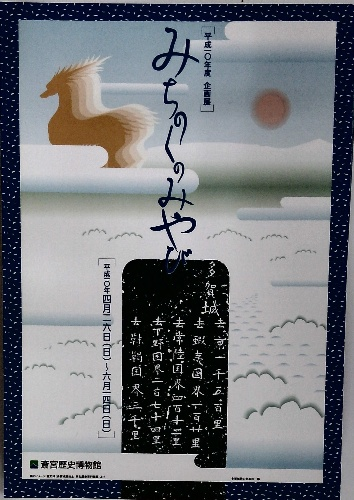 平成一〇年度 企画展
みちのくのみやび
多賀城
去京一千五百里
去蝦夷国界一百廿里
去常陸国界四百十二里
去下野国界二百七十四里
去靺鞨国界三千里
平成一〇年四月二六日(日)〜六月一四日(日)
斎宮歴史博物館